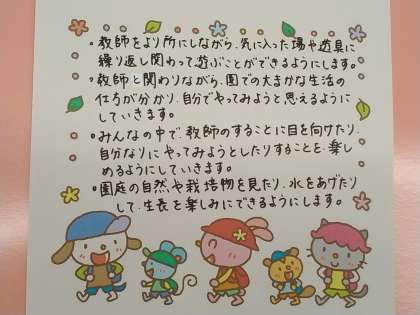 ・教師をより所にしながら、気に入った場や遊具に
繰り返し関わって遊ぶことができるようにします。
・教師と関わりながら、園での大まかな生活の
仕方が分かり、自分でやってみようと思えるように
していきます。
・みんなの中で、教師のすることに目を向けたり、
自分なりにやってみようとしたりすることを、楽し
めるようにしていきます。
・園庭の自然や栽培物を見たり、水をあげたり
して、生長を楽しみにできるようにします。